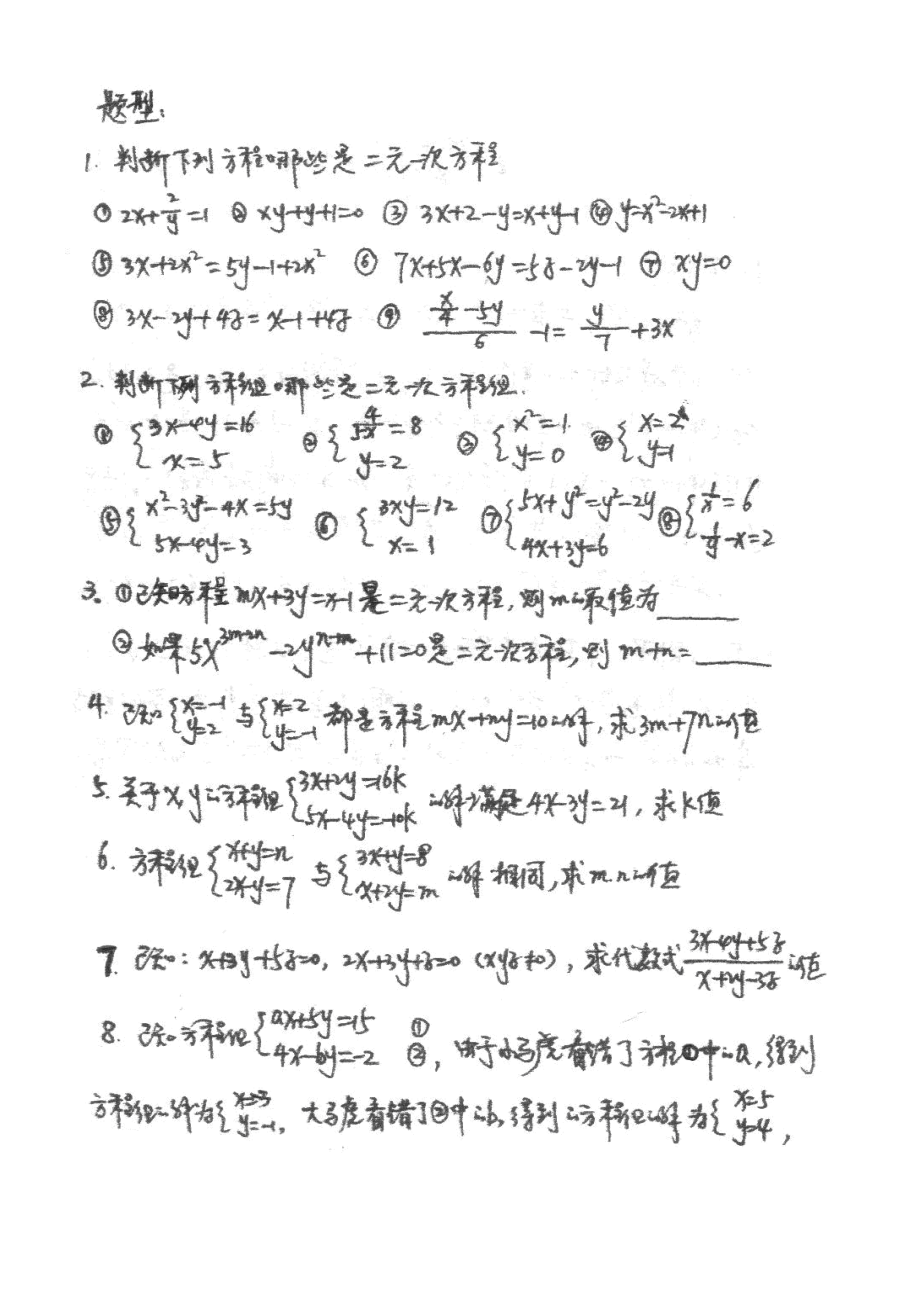 题型:
1. 判断下列方程哪些是二元一次方程
① 2x+2/y=1 ② xy+y+1=0 ③ 3x+2-y=x+y-1 ④ y=x²-2x+1
⑤ 3x+2x²=5y-1+2x² ⑥ 7x+5x-6y=5z-2y-1 ⑦ xy=0
⑧ 3x-2y+4z=x-1+4z ⑨ (x/4-5y)/6-1=y/7+3x
2. 判断下列方程组哪些是二元一次方程组.
① {3x-4y=16, x=5 ② {=8, y=2 ③ {x²=1, y=0 ④ {x=2, y=1
⑤ {x²-3y²-4x=5y, 5x-4y=3 ⑥ {3xy=12, x=1 ⑦ {5x+y²=y²-2y, 4x+3y=6 ⑧ {1/x=6, 1/y-x=2
3. ①已知方程mx+3y=x-1是二元一次方程,则m的取值为____
②如果5x^(3m-2n)-2y^(n-m)+11=0是二元一次方程,则m+n=____
4. 已知{x=-1, y=2 与{x=2, y=-1 都是方程mx+ny=10的解,求3m+7n的值
5. 关于x,y的方程组{3x+2y=16k, 5x-4y=-10k 的解满足4x-3y=21,求k值
6. 方程组{x+y=n, 2x-y=7 与{3x+y=8, x+2y=m 的解相同,求m.n的值
7. 已知:x+3y+5z=0, 2x+3y+z=0 (xyz≠0),求代数式(3x-4y+5z)/(x+2y-3z)的值
8. 已知方程组{ax+5y=15 ①, 4x-by=-2 ②,由于小马虎看错了方程①中的a,得到
方程组的解为{x=-3, y=-1,大马虎看错了②中的b,得到的方程组的解为{x=5, y=4,